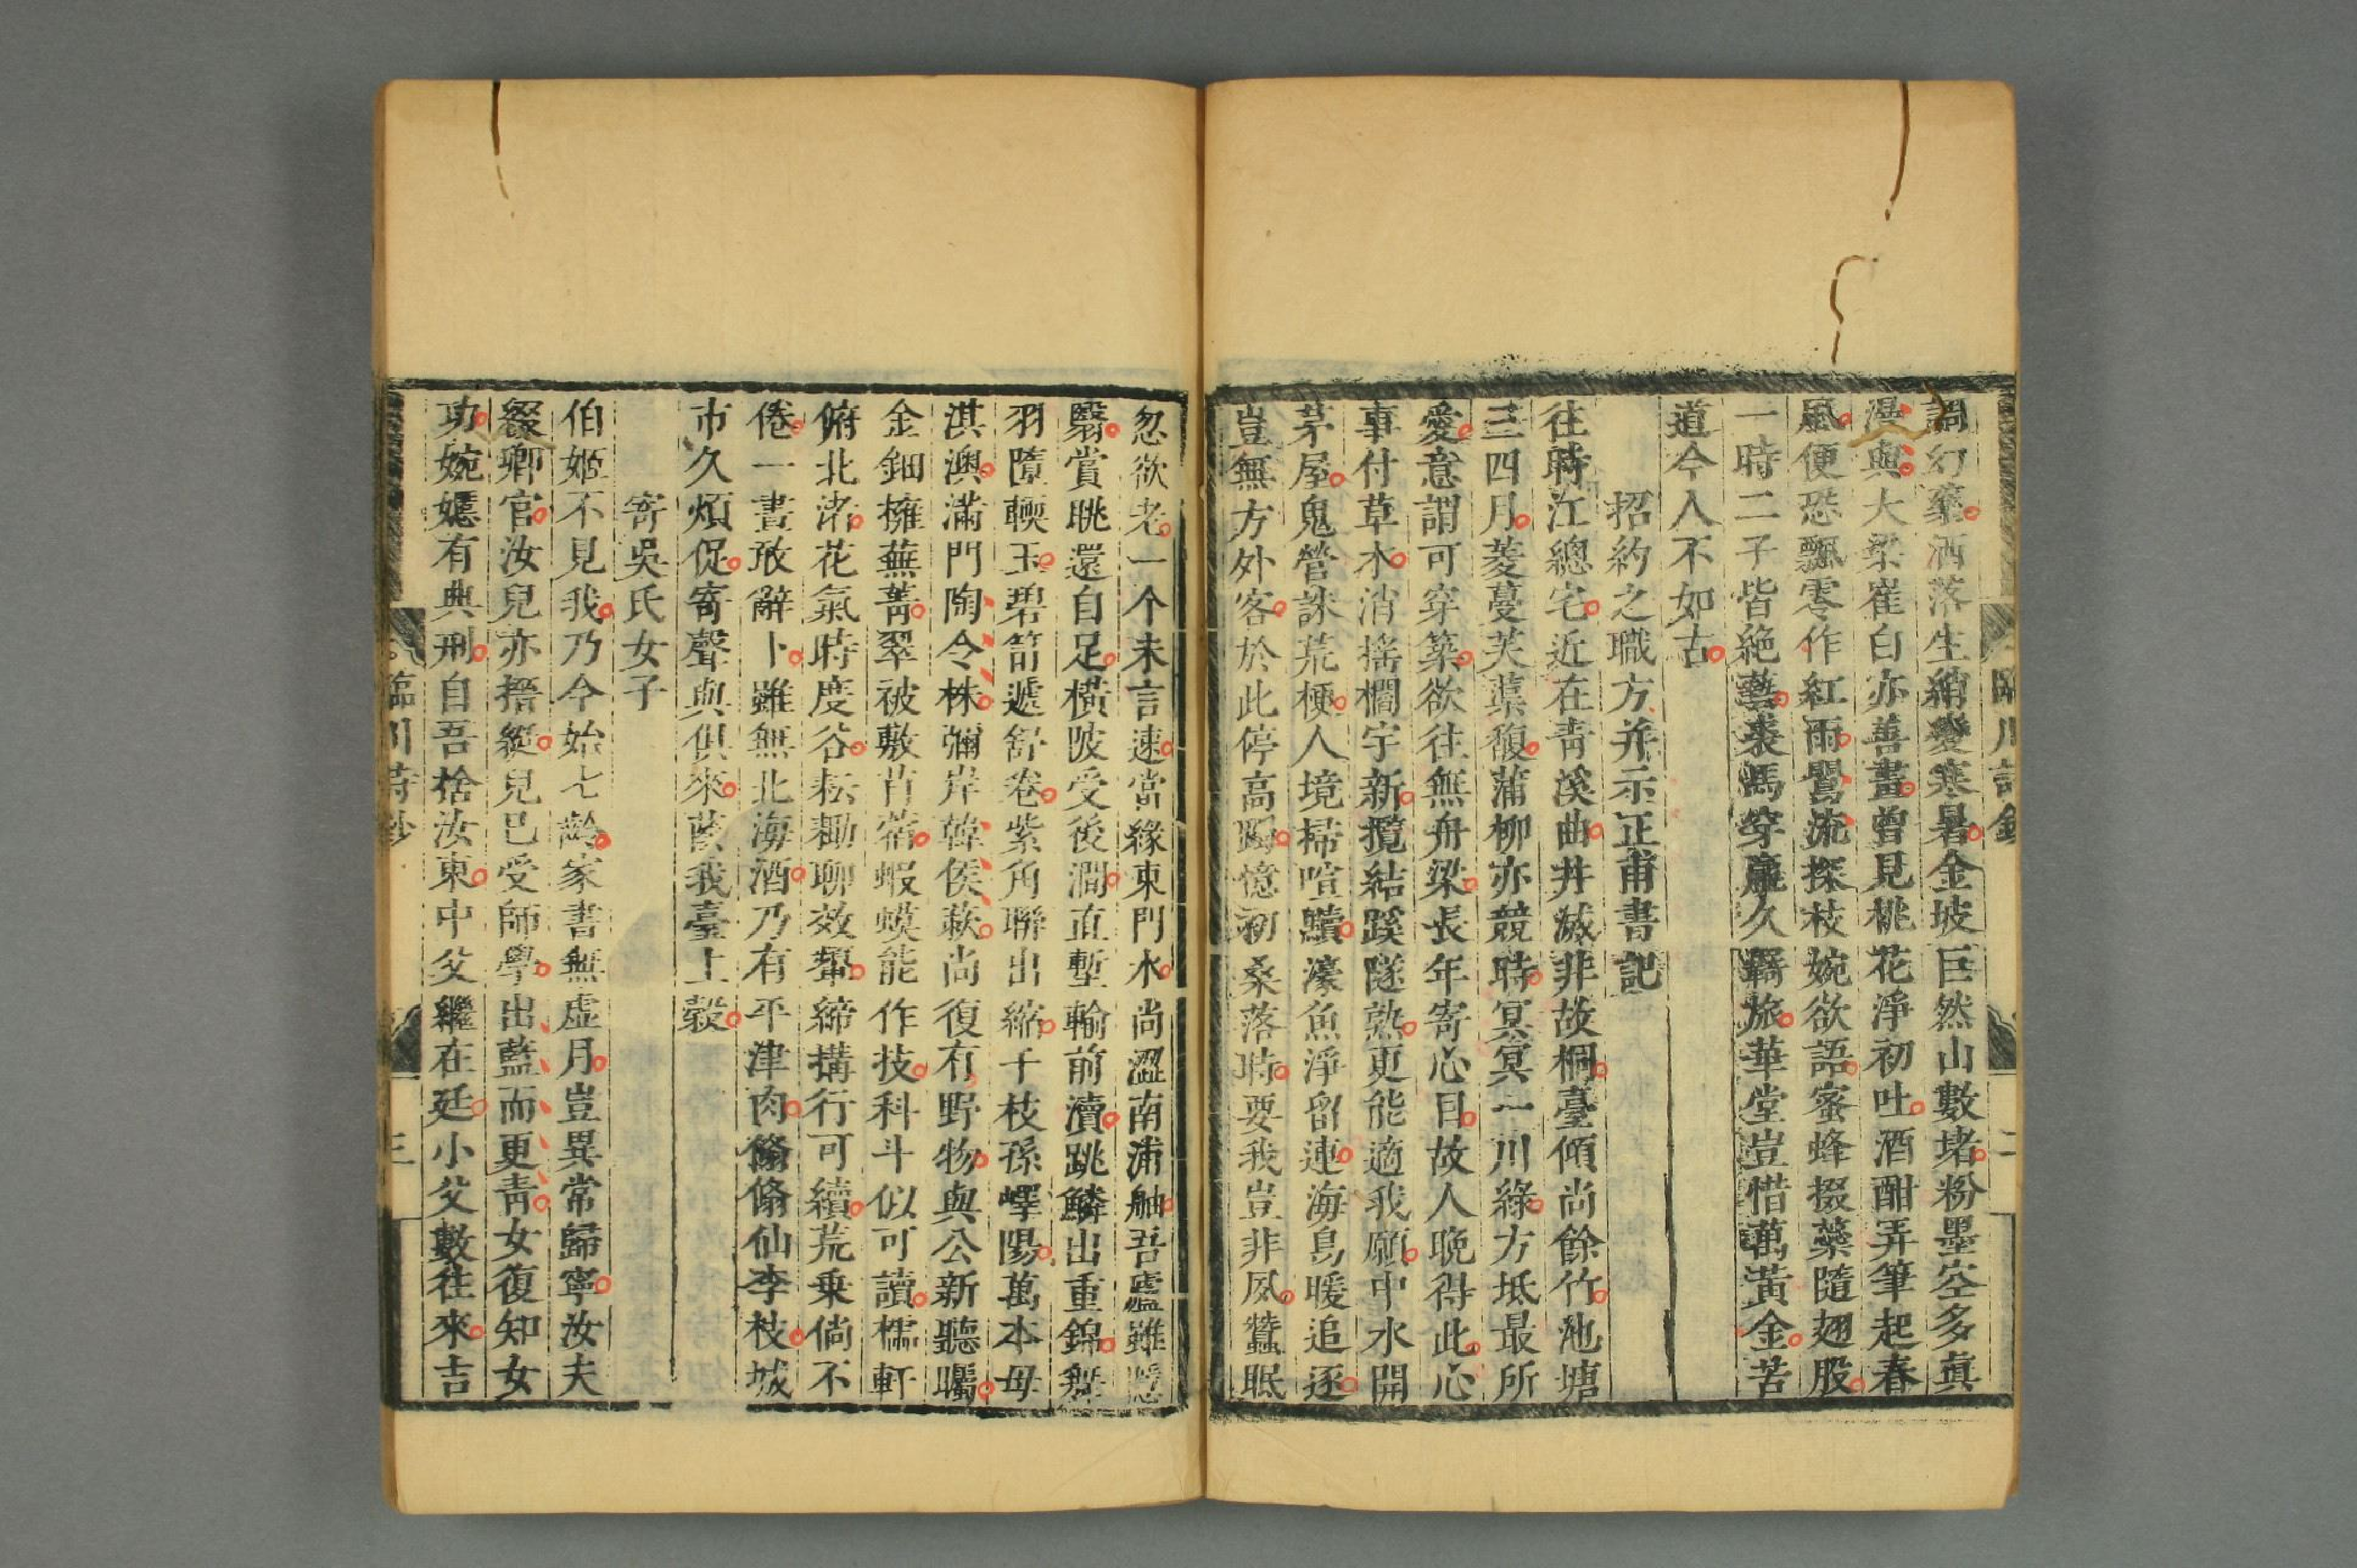 臨川詩鈔
二
調幻藥洒落生綃變寒暑金坡巨然山數堵粉墨空多眞
漫與大梁崔白亦善畫曾見桃花淨初吐酒酣弄筆起春
風便恐飄零作紅雨鸎流探枝婉欲語蜜蜂掇蘂隨翅股
一時二子皆絶藝裘馬穿羸久羈旅華堂豈惜萬黃金苦
道今人不如古
招約之職方并示正甫書記
往時江總宅近在青溪曲井滅非故桐臺傾尚餘竹池塘
三四月菱蔓芙蕖馥蒲柳亦競時冥冥一川綠方坻最所
愛意謂可穿築欲往無舟梁長年寄心目故人晚得此心
事付草木消搖櫚宇新攬結蹊隧熟更能適我願中水開
茅屋鬼營誅荒梗人境掃喧黷濠魚淨留連海鳥暖追逐
豈無方外客於此停高躅憶初桑落時要我豈非夙蠶眠
忽欲老一个未言速當緣東門水尚澀南浦舳吾廬雖隱
翳賞眺還自足橫陂受後澗直塹輸前瀆跳鱗出重錦舞
羽墮輭玉碧筩遞舒卷紫角聯出縮千枝孫嶧陽萬本母
淇澳滿門陶令株彌岸韓侯蔌尚復有野物與公新聽矚
金鈿擁蕪菁翠被敷苜蓿蝦蟆能作技科斗似可讀櫺軒
俯北渚花氣時度谷耘耡聊效顰締搆行可續荒乗倘不
倦一晝敢辭卜雖無北海酒乃有平津肉翛翛仙李枝城
市久煩促寄聲與俱來蔭我臺上轂
寄吳氏女子
伯姬不見我乃今始七齡家書無虚月豈異常歸寧汝夫
綴卿官汝兒亦搢綎兒巳受師學出藍而更青女復知女
功婉嫕有典刑自吾捨汝東中父繼在廷小父數往來吉
臨川詩鈔
三